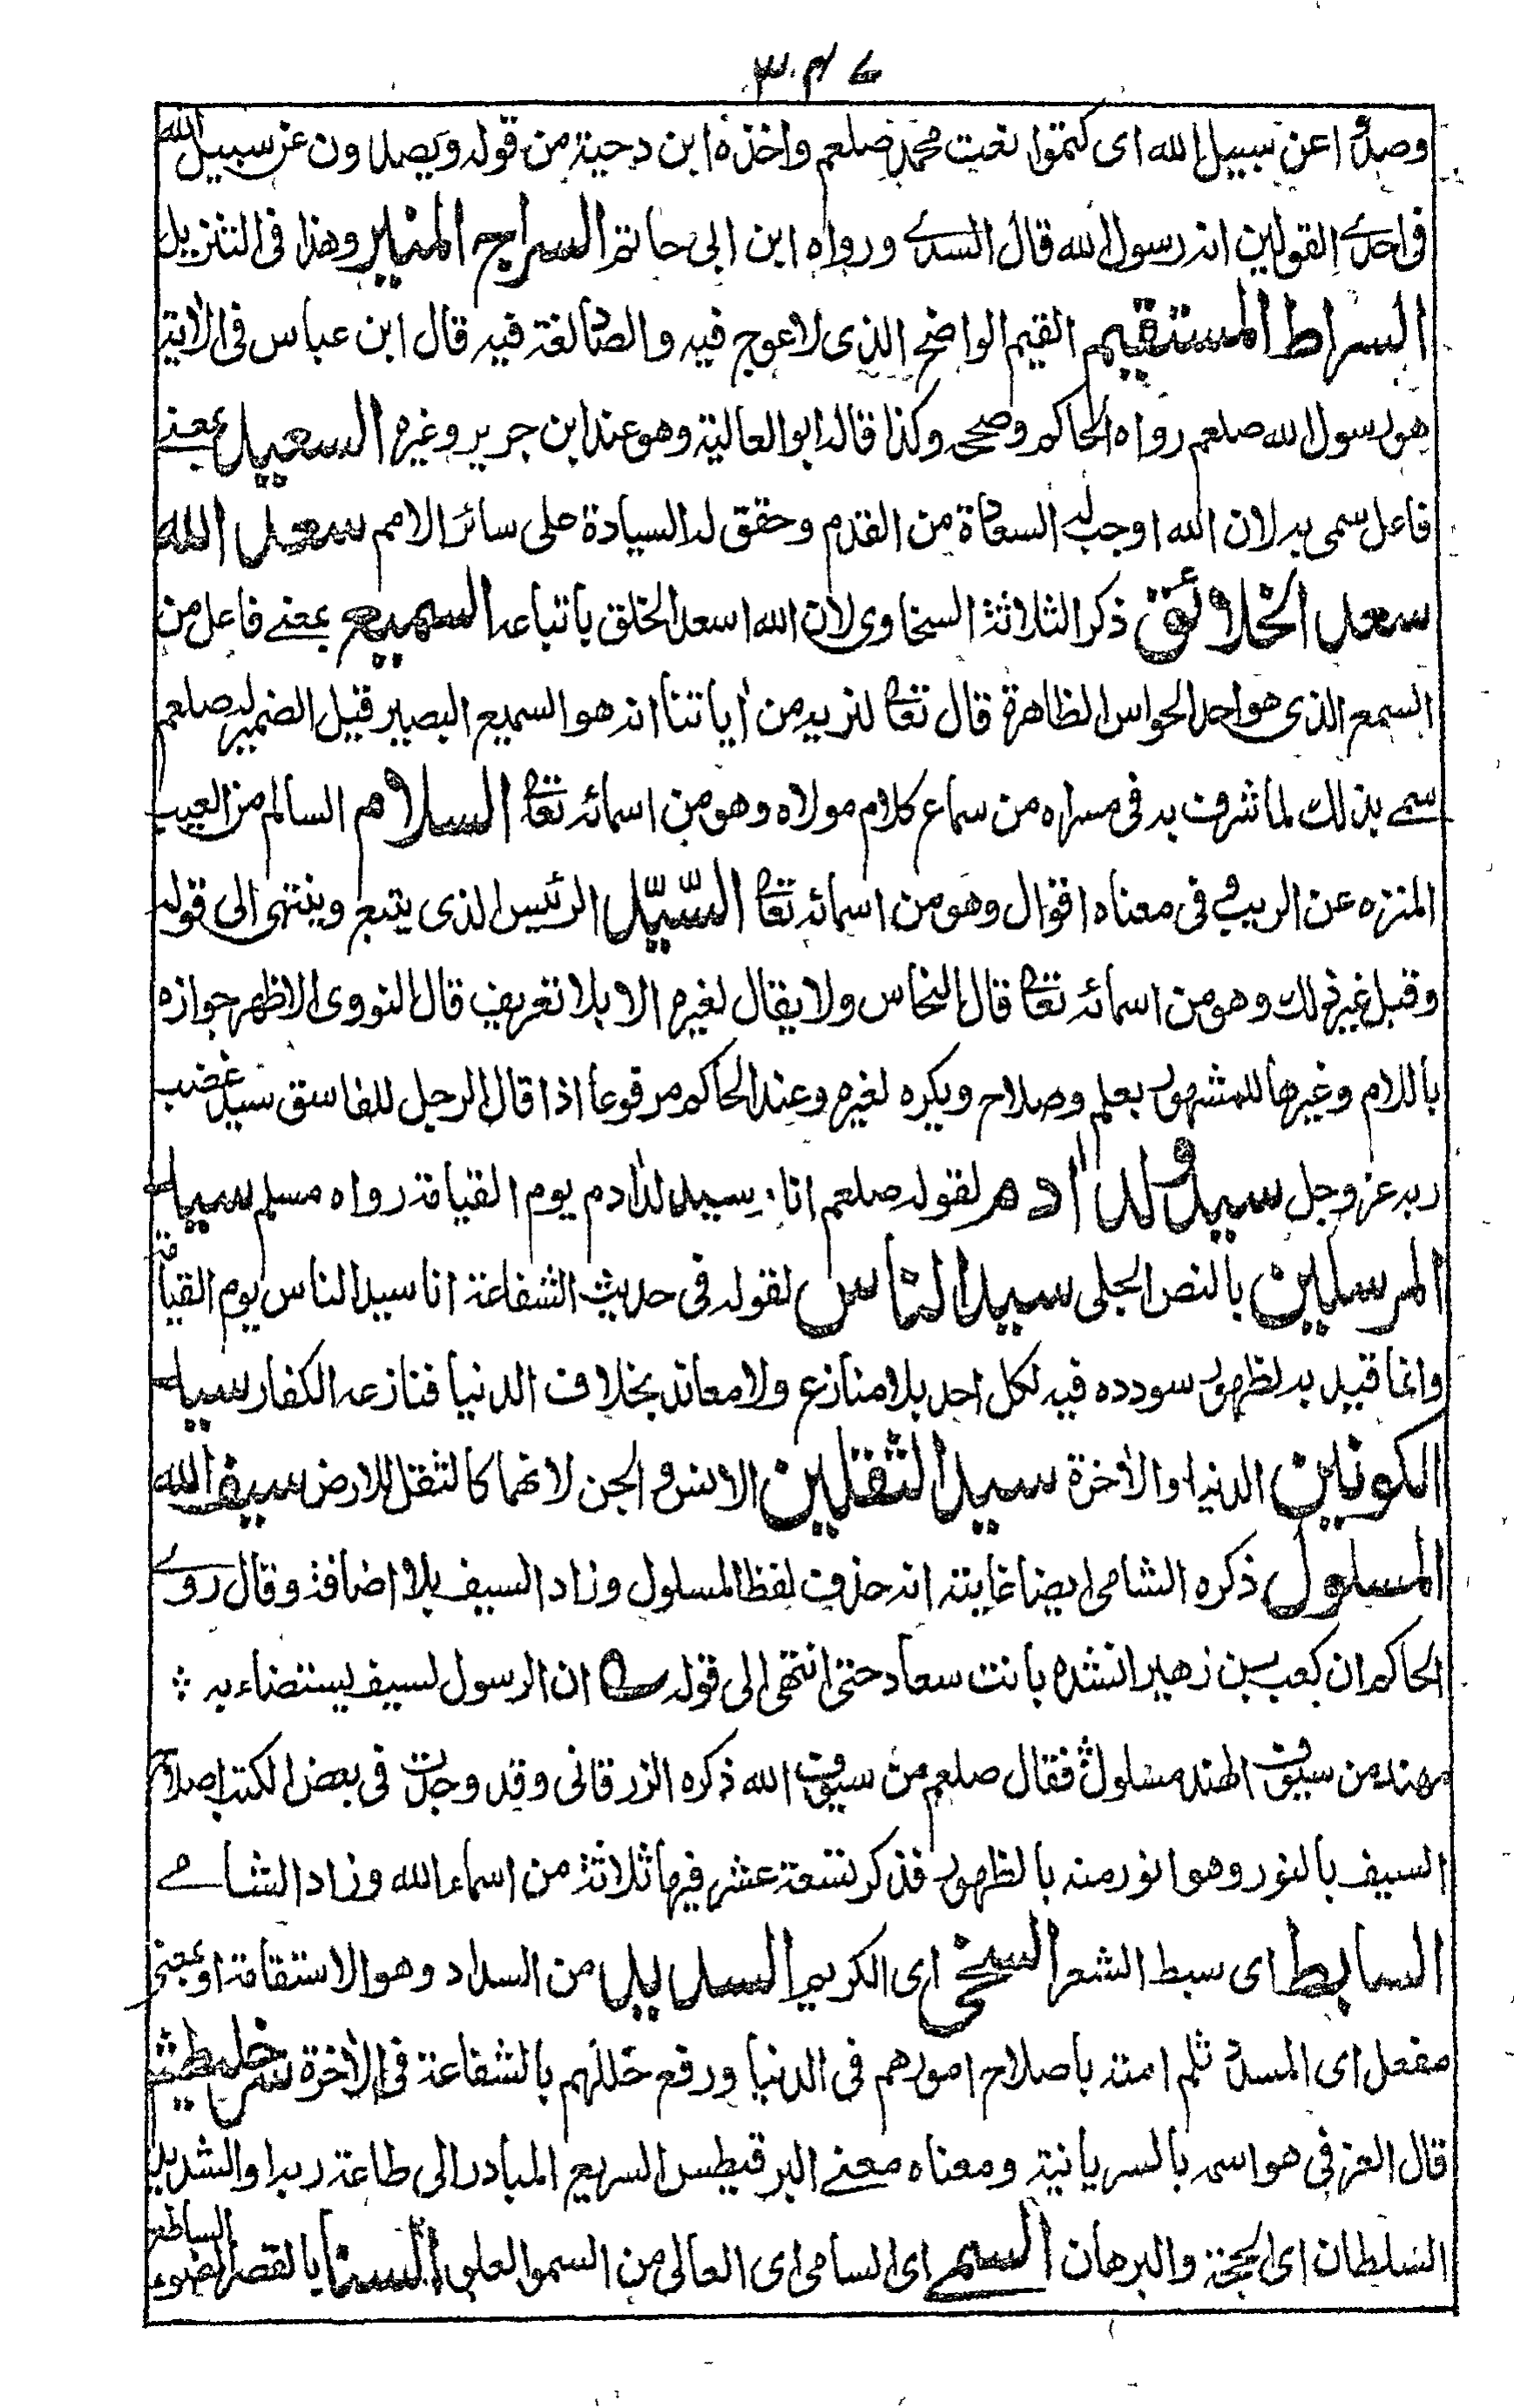 وصدوا عن سبيل الله اى كتموا نعت محمد صلعم واخذه ابن دحية من قوله ويصدون عن سبيل الله
فى احدى القولين انه رسول الله قال السدى ورواه ابن ابى حاتم السراج المنير وهذا فى التنزيل
السراط المستقيم القيم الواضح الذى لاعوج فيه والصاد لغة فيه قال ابن عباس فى الآية
هو رسول الله صلعم رواه الحاكم وصححه وكذا قاله ابو العالية وهو عند ابن جرير وغيره السعيد بمعنى
فاعل سمى به لان الله اوجب له السعادة من القدم وحقق له السيادة على سائر الامم سعد الله
سعد الخلائق ذكر الثلاثة السخاوى لان الله اسعد الخلق باتباعه السميع بمعنى فاعل من
السمع الذى هو احد الحواس الظاهرة قال تعا لنريه من أياتنا انه هو السميع البصير قيل الضمير له صلعم
سمى بذلك لما شرف به فى مسراه من سماع كلام مولاه وهو من اسمائه تعا السلام السالم من العيب
المنزه عن الريب و فى معناه اقوال وهو من اسمائه تعا السّيّد الرئيس الذى يتبع وينتهى الى قوله
وقيل غير ذلك وهو من اسمائه تعا قال النحاس ولا يقال لغيره الا بلا تعريف قال النووى الاظهر جوازه
باللام وغيرها للمشهور بعلم وصلاح ويكره لغيره وعند الحاكم مرفوعا اذا قال الرجل للفاسق سيد غضب
ربه عز وجل سيد ولد أدم لقوله صلعم انا سيد ولد أدم يوم القيامة رواه مسلم سيد
المرسلين بالنص الجلى سيد الناس لقوله فى حديث الشفاعة انا سيد الناس يوم القيامة
وانما قيد به لظهور سودده فيه لكل احد بلا منازع ولا معاند بخلاف الدنيا فنازعه الكفار سيد
الكونين الدنيا والأخرة سيد الثقلين الانس والجن لانهما كالثقل للارض سيف الله
المسلول ذكره الشامى ايضا غايته انه حذف لفظ المسلول وزاد السيف بلا اضافة وقال روى
الحاكم ان كعب بن زهير انشده بانت سعاد حتى انتهى الى قوله ان الرسول لسيف يستضاء به
مهند من سيوف الهند مسلول فقال صلعم من سيوف الله ذكره الزرقانى وقد وجدت فى بعض الكتب اصلاح
السيف بالنور وهو انور منه بالظهور فذكر تسعة عشر فيها ثلاثة من اسماء الله وزاد الشامى
السابط اى سبط الشعر السخى اى الكريم السديد من السداد وهو الاستقامة او بمعنى
مفعل اى المسدد ثلم امته باصلاح امورهم فى الدنيا ورفع خللهم بالشفاعة فى الأخرة
قال العزفى هو اسمه بالسريانية ومعناه معنى البرقيطس السريع المبادر الى طاعة ربه او الشديد
السلطان اى الحجة والبرهان السمى اى السامى اى العالى من السمو العلى السنا بالقصر الضوء الساطع